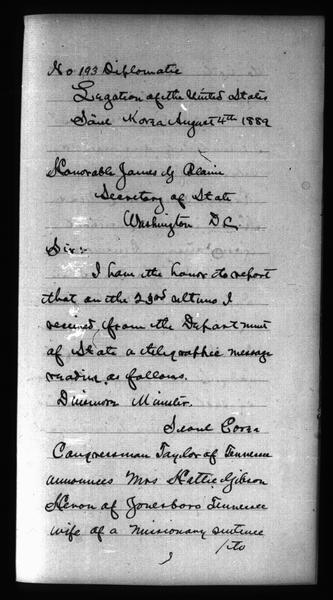 No 193 Diplomatic
Legation of the United States
Söul Korea August 4th 1889
Honorable James G Blaine
Secretary of State
Washington DC
Sir:-
I have the honor to report
that on the 23rd ultimo I
received from the Department
of State a telegraphic message
reading as follows.
Dinsmore Minister.
Seoul Corea
Congressman Taylor of Tennessee
announces Mrs Hattie Gibson
Heron of Jonesboro Tennessee
wife of a missionary sentence
/to